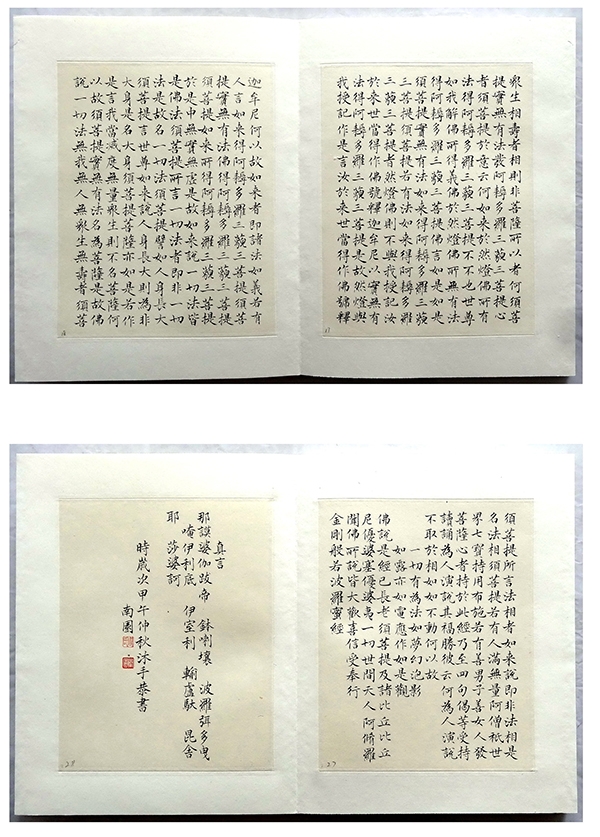 眾生相壽者相則非菩薩所以者何須菩
提實無有法發阿耨多羅三藐三菩提心
者須菩提於意云何如來於然燈佛所有
法得阿耨多羅三藐三菩提不不也世尊
如我解佛所得義佛於然燈佛所無有法
得阿耨多羅三藐三菩提佛言如是如是
須菩提實無有法如來得阿耨多羅三藐
三菩提須菩提若有法如來得阿耨多羅
三藐三菩提者然燈佛則不與我授記汝
於來世當得作佛號釋迦牟尼以實無有
法得阿耨多羅三藐三菩提是故然燈與
我授記作是言汝於來世當得作佛號釋
迦牟尼何以故如來者即諸法如義若有
人言如來得阿耨多羅三藐三菩提須菩
提實無有法佛得阿耨多羅三藐三菩提
須菩提如來所得阿耨多羅三藐三菩提
於是中無實無虛是故如來說一切法皆
是佛法須菩提所言一切法者即非一切
法是故名一切法須菩提譬如人身長大
須菩提言世尊如來說人身長大則為非
大身是名大身須菩提菩薩亦如是若作
是言我當滅度無量眾生則不名菩薩何
以故須菩提實無有法名為菩薩是故佛
說一切法無我無人無眾生無壽者須菩
須菩提所言法相者如來說即非法相是
名法相須菩提若有人滿無量阿僧祇世
界七寶持用布施若有善男子善女人發
菩薩心者持於此經乃至四句偈等受持
讀誦為人演說其福勝彼云何為人演說
不取於相如如不動何以故
一切有為法如夢幻泡影
如露亦如電應作如是觀
佛說是經已長老須菩提及諸比丘比丘
尼優婆塞優婆夷一切世間天人阿脩羅
聞佛所說皆大歡喜信受奉行
金剛般若波羅蜜經
27
真言
那謨婆伽跋帝 鉢喇壤 波羅弭多曳
唵伊利底 伊室利 輸盧馱 毘舍
耶 莎婆訶
時歲次甲午仲秋沐手恭書
南園
28